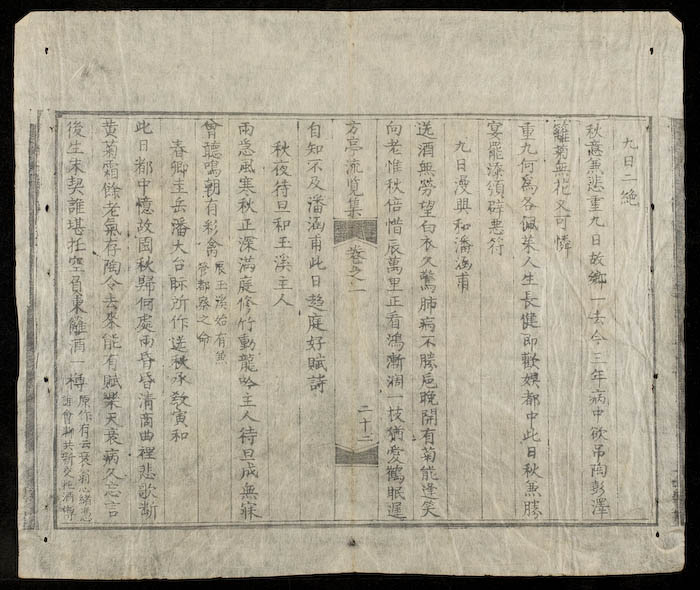 九日二絶
秋意兼悲重九日故鄉一去今三年病中欲吊陶彭澤
籬菊無花又可憐
重九何爲各佩茱人生長健即歡娛都中此日秋無勝
宴罷添須辟惡符
九日漫興和潘涵甫
送酒無勞望白衣久驚肺病不勝卮晚開有菊能逢笑
向老惟秋倍惜辰萬里正看鴻漸濶一枝猶愛鶴眠遲
方亭流覧集 卷之一 二十二
自知不及潘涵甫此日趍庭好賦詩
秋夜待旦和玉溪主人
雨急風寒秋正深滿庭修竹動龍吟主人待旦成無寐
曾聽鳴朝有彩禽
辰玉溪始有無
管部之命
春卿主岳潘大台師所作送秋承敎寅和
此日都中憶故園秋歸何處雨昏昏清商曲裡悲歌斷
黃菊霜餘老氣存陶令去來能有賦樂天衰病久忘言
後生末契誰堪托空負東籬酒一樽
原作有云衰翁心緒憑
誰會聊共新交托酒樽